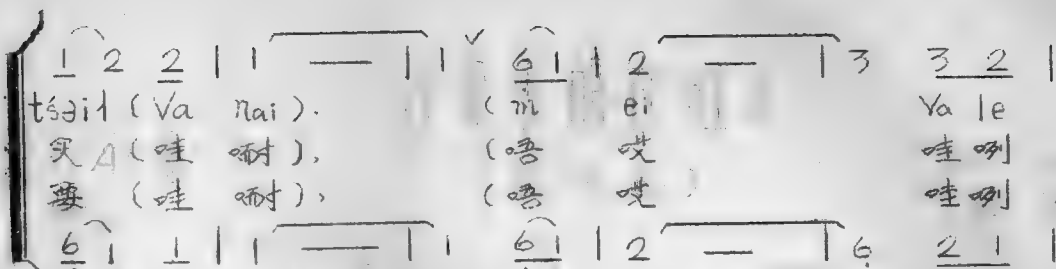 1 2 2 | 1 — | 1 ∨ 6 1 | 2 — | 3 3 2 |
(Va nai). (m ei Va le
买 (哇 嗬), (唔 哎 哇 咧
要 (哇 嗬), (唔 哎 哇 咧
6 1 1 | 1 — | 1 6 1 | 2 — | 6 2 1 |